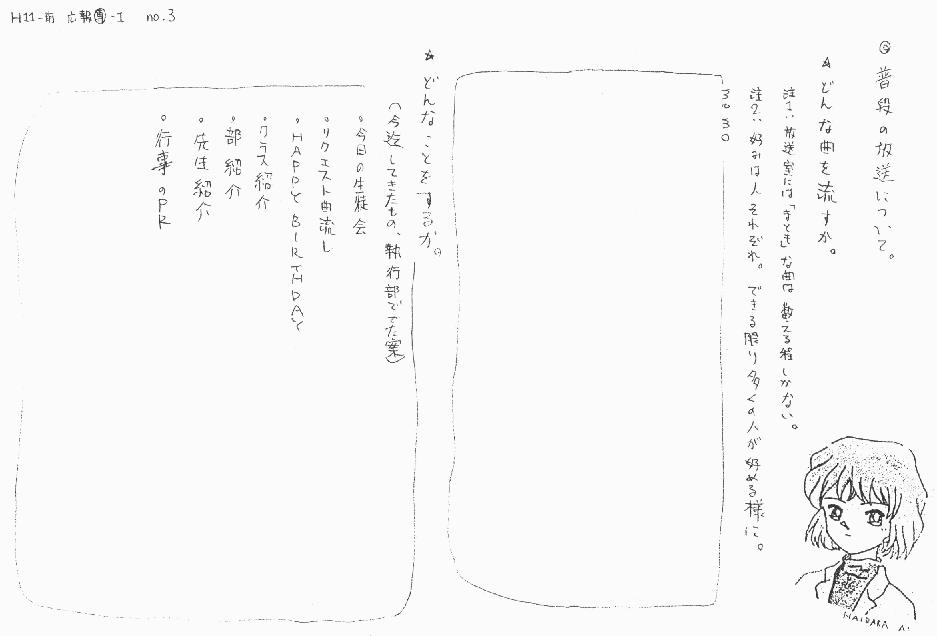 H11-前 広報㊩-I no.3
◎ 普段の放送について。
☆ どんな曲を流すか。
注1:放送室には「まとも」な曲は数える程しかない。
注2:好みは人それぞれ。できる限り多くの人が好める様に。
☆ どんなことをするか。
(今迄してきたもの、執行部ででた案)
・今日の生徒会
・リクエスト曲流し
・HAPPY BIRTHDAY
・クラス紹介
・部紹介
・先生紹介
・行事のPR
HAIBARA A.